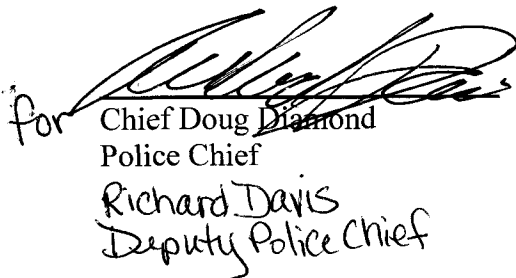 for
Chief Doug Diamond
Police Chief
Richard Davis
Deputy Police Chief